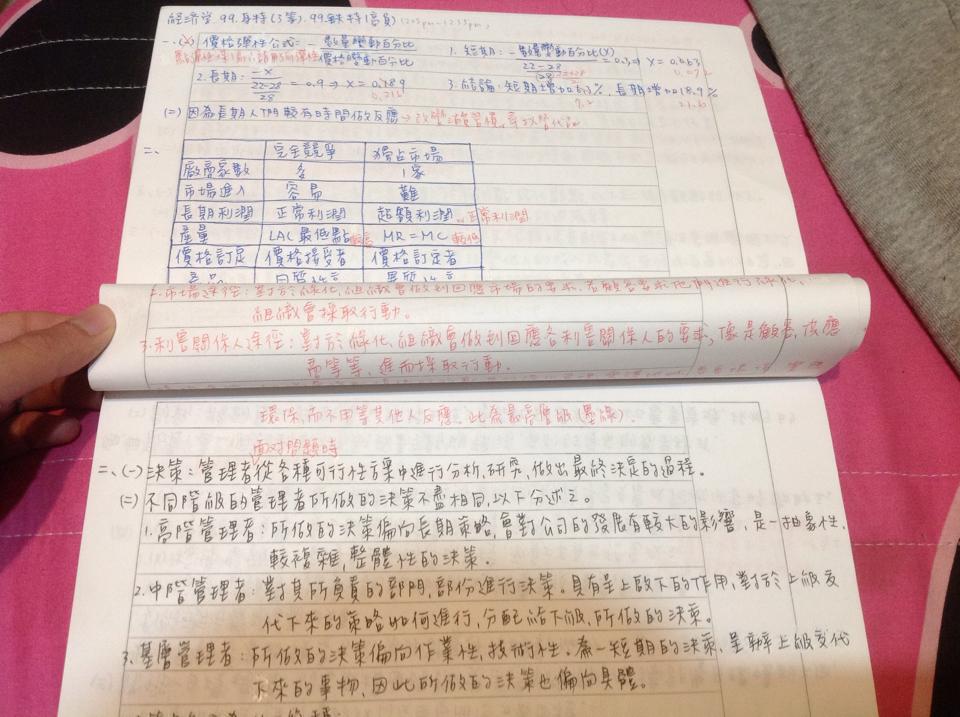 經濟學.99.身特(3等).99.鐵特(高員)
一、(一) 價格彈性公式= - 數量變動百分比
價格變動百分比
1. 短期: - 數量變動百分比(X)
22-28
28
= 0.3 ⇒ X = 0.063
2. 長期: -X
22-28
28
= 0.9 ⇒ X = 0.189
3. 結論: 短期增加6.3%, 長期增加18.9%
(二) 因為長期人們較有時間做反應
二、
完全競爭 獨占市場
廠商家數 多 1家
市場進入 容易 難
長期利潤 正常利潤 超額利潤 正常利潤
產量 LAC最低點 較高 MR=MC 較低
價格訂定 價格接受者 價格訂定者
組織會採取行動。
3.利害關係人途徑:對於綠化,組織會做到回應各利害關係人的要求,像是顧客,供應
商等等,進而採取行動。
環保,而不用等其他人反應。此為最高層級(墨綠)。
面對問題時
二、(一) 決策:管理者從各種可行性方案中進行分析,研究,做出最終決定的過程。
(二) 不同階級的管理者所做的決策不盡相同,以下分述之。
1.高階管理者:所做的決策偏向長期策略,會對公司的發展有較大的影響,是一抽象性,
較複雜,整體性的決策。
2.中階管理者:對其所負責的部門,部份進行決策。具有呈上啟下的作用,對於上級交
代下來的策略如何進行,分配給下級,所做的決策。
3.基層管理者:所做的決策偏向作業性,技術性。為一短期的決策,呈辦上級交代
下來的事物,因此所做的決策也偏向具體。